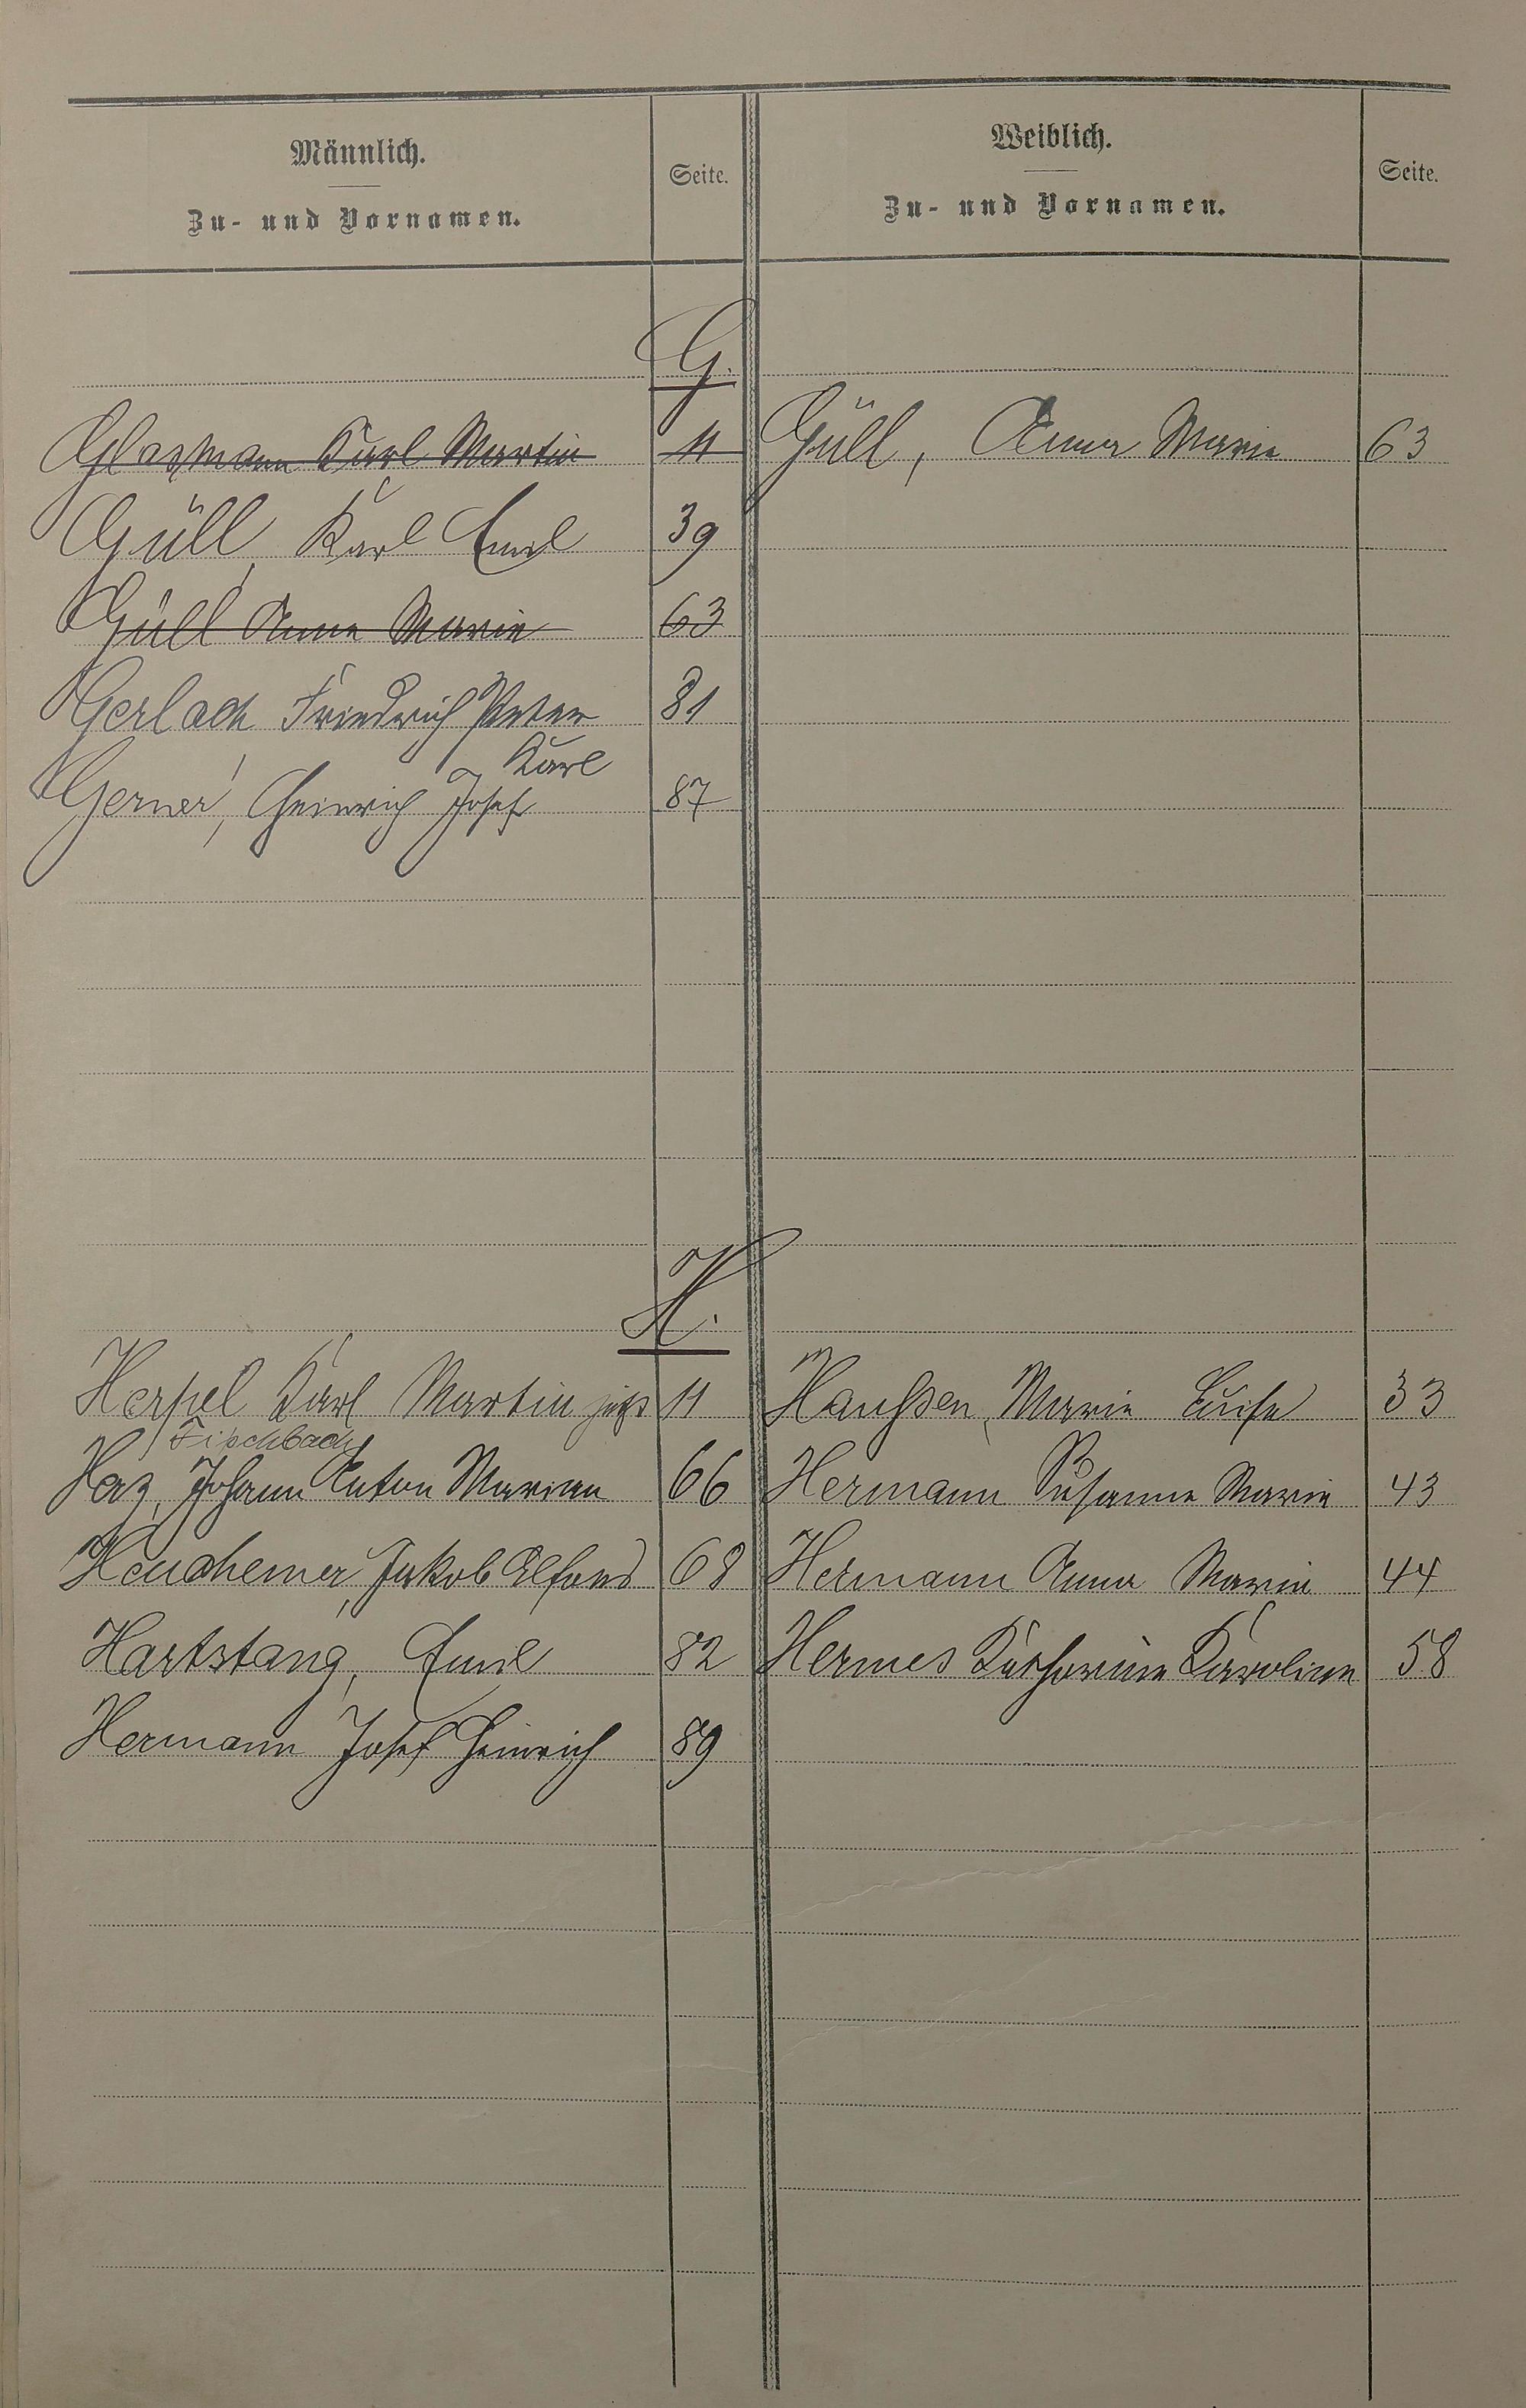 Männlich.
Zu- und Vornamen.
Seite.
Weiblich.
Zu- und Vornamen.
Seite.
G.
Glasmann Karl Martin 11 Güll, Anna Maria 63
Güll, Karl Emil 39
Güll Anna Maria 63
Gerlach Friedrich Peter 81
Karl
Gerner, Heinrich Josef 87
H.
Herpel Karl Martin jetzt 11 Haußen, Maria Luise 33
Fischbach
Herz, Johann Anton Marian 66 Hermann Susanna Maria 43
Jakob Alfons 68 Hermann Anna Maria 44
Hartstang, Emil 82 Hermes Katharina Karolina 58
Hermann Josef Heinrich 89